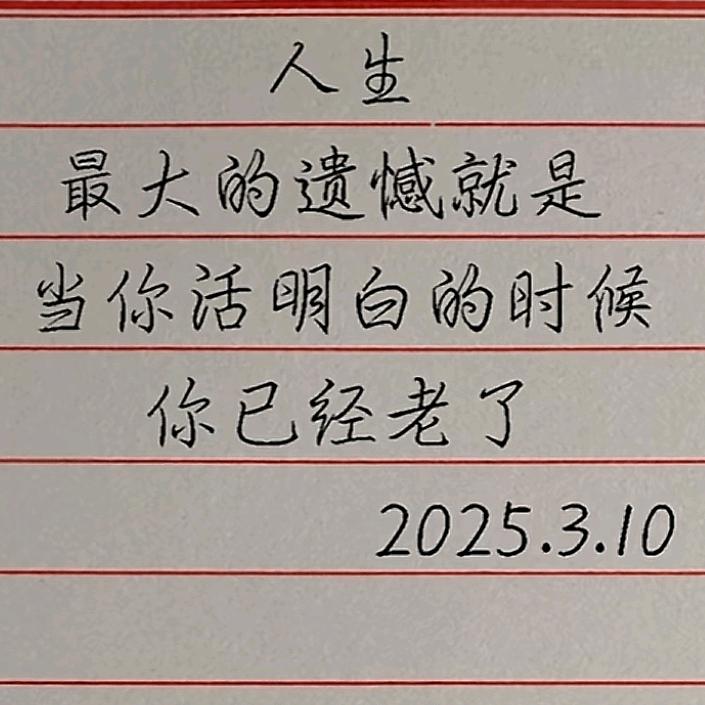 人生
最大的遗憾就是
当你活明白的时候
你已经老了
2025.3.10